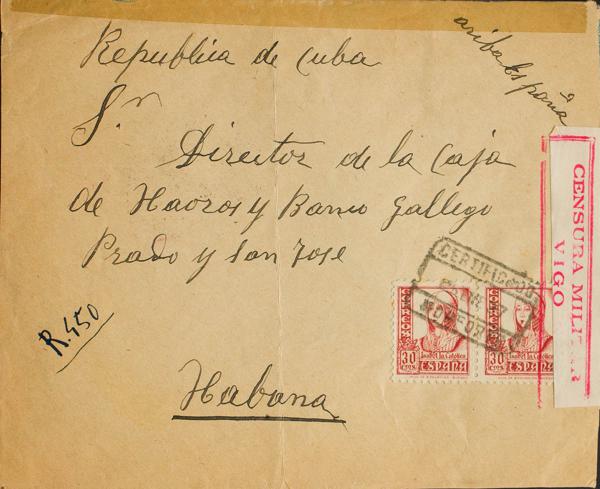 Republica de Cuba
ariba España
S.r
Director de la Caja
de Haoros y Banco Gallego
Prado y San Jose
R.450
Habana
CERTIFICADO
MONFOR
CENSURA MILITAR
VIGO
CORREOS
30
CTS
Isabel la Católica
ESPAÑA
CORREOS
30
CTS
Isabel la Católica
ESPAÑA